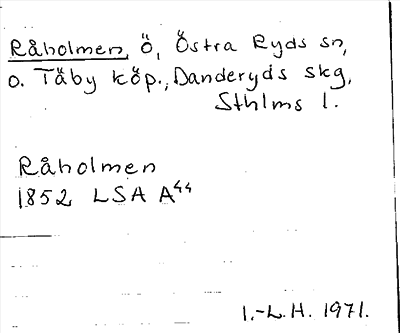 Råholmen, ö, Östra Ryds sn,
o. Täby köp., Danderyds skg,
Sthlms l.
Råholmen
1852 LSA A44
I.-L.H. 1971.